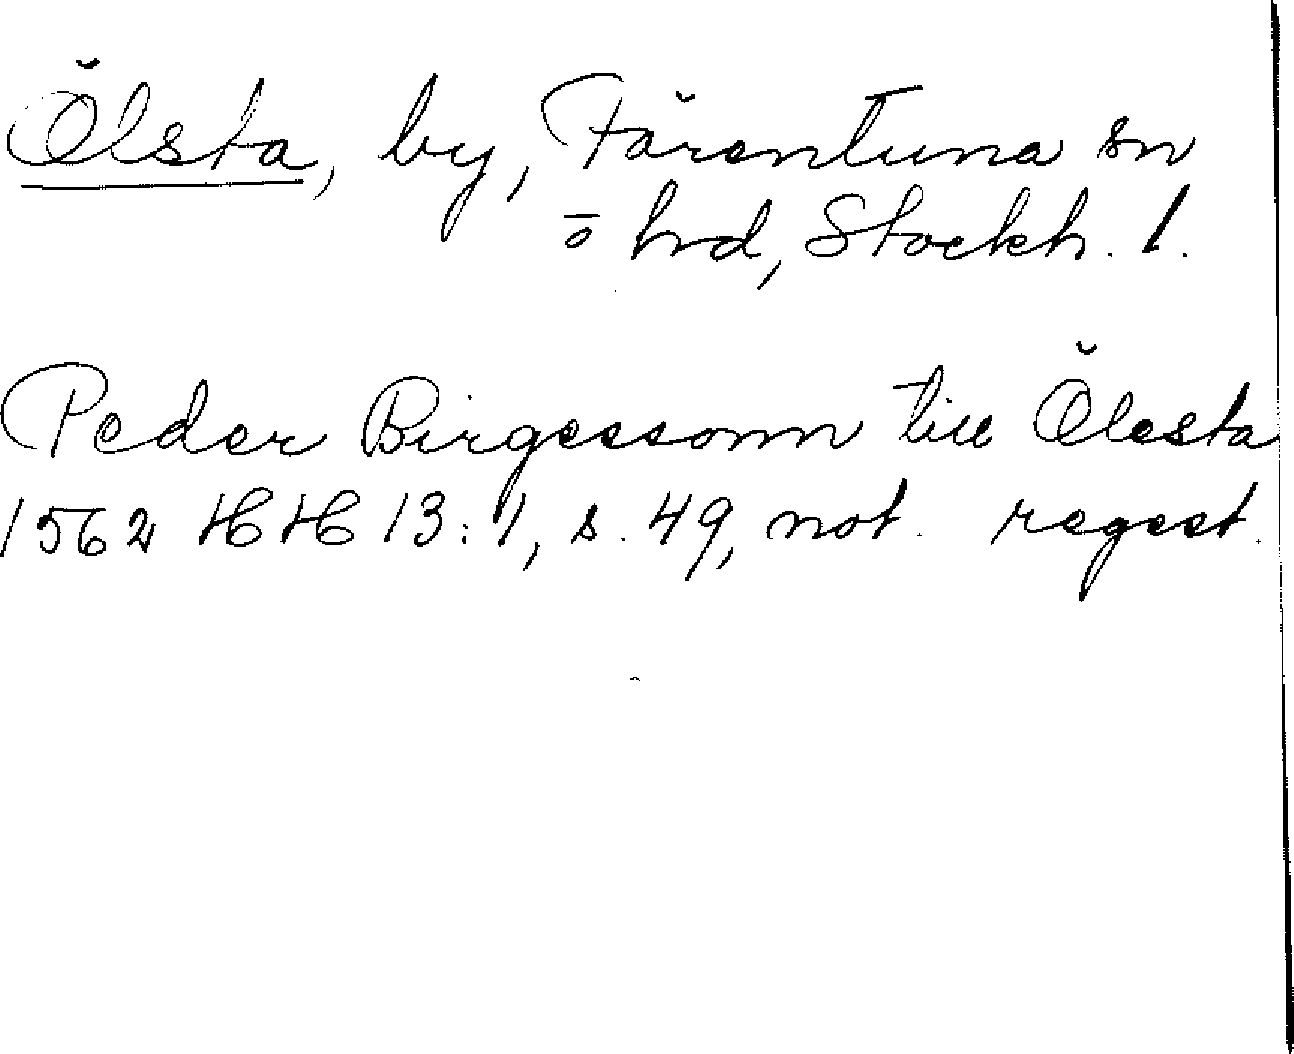 Ölsta, by, Färentuna sn
o hd, Stockh. l.
Peder Birgessonn till Ölesta
1562 HH 13:1, s. 49, not. regest.